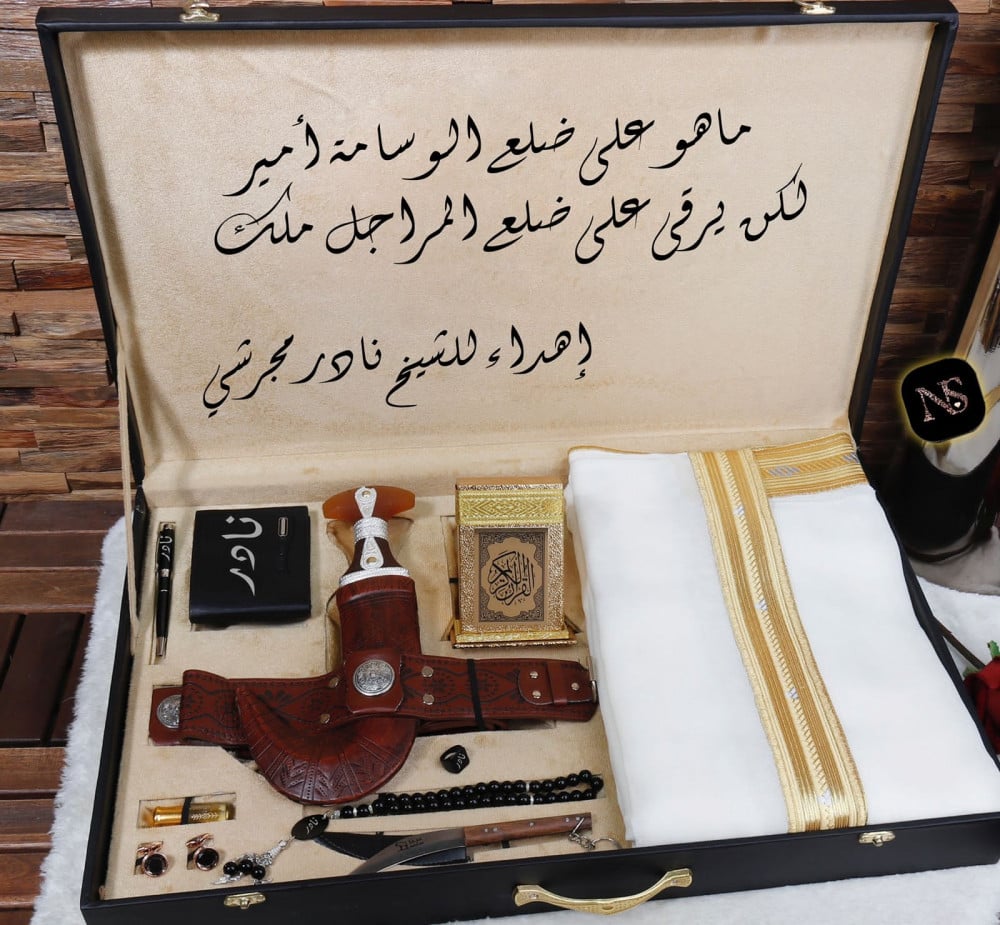 ماهو على ضلع الوسامة أمير
لكن يرقى على ضلع المراجل ملك
إهداء للشيخ نادر مجرشي
نادر
نادر
القرآن الكريم
نادر
نادر
NS